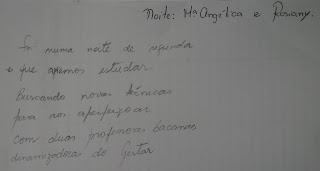 Noite: Mª Angélica e Rosiany.
Foi numa noite de segunda
que viemos estudar
Buscando novas técnicas
para nos aperfeiçoar
com duas professoras bacanas
dinamizadoras do Gestar